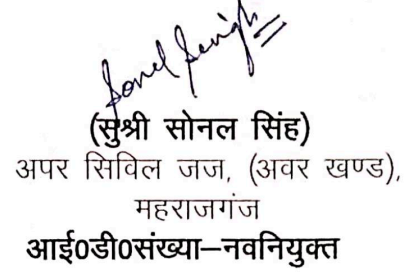 Sonal Singh
(सुश्री सोनल सिंह)
अपर सिविल जज, (अवर खण्ड),
महराजगंज
आई0डी0संख्या–नवनियुक्त